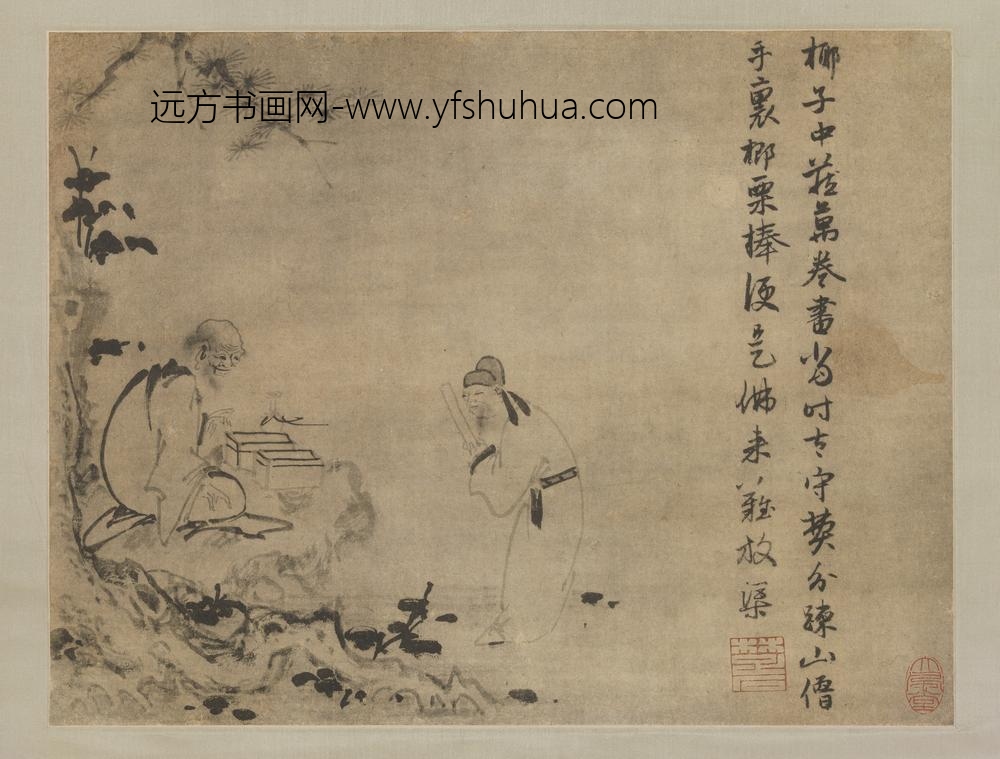 远方书画网-www.yfshuhua.com
椰子中藏萬卷書當時太守費分踈山僧
手裏楖栗棒便是佛來難放渠